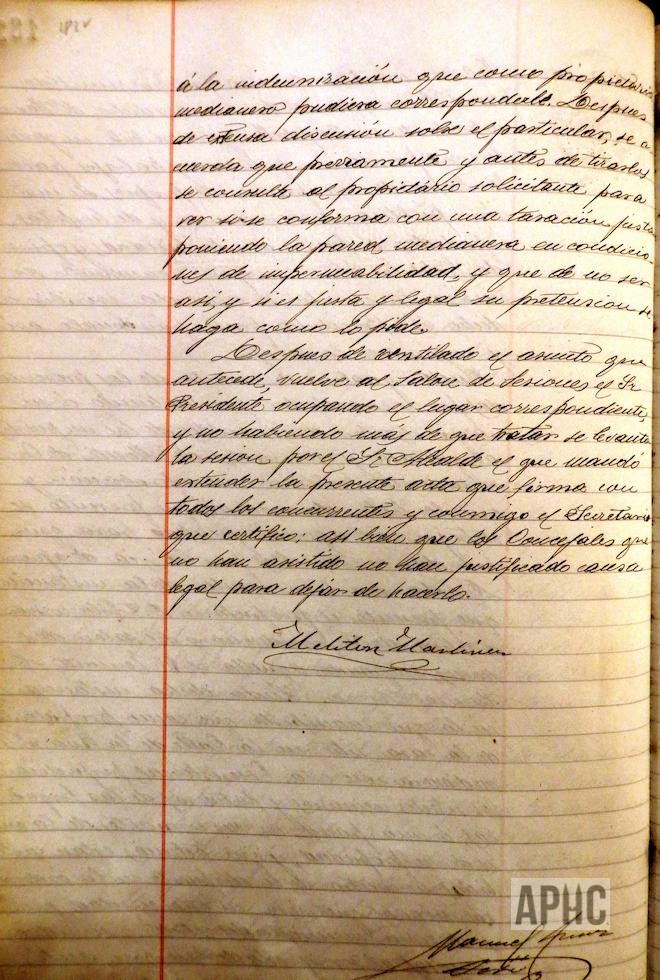 182 v
á la indemnización que como propietario
medianero pudiera corresponderle. Despues
de extensa discusión sobre el particular, se a
cuerda que previamente y antes de tirarlos
se consulte al propidário solicitante para
ver si se conforma con una tasación justa
poniendo la pared medianera en condicio
nes de impermeabilidad, y que de no ser
asi, y si es justa y legal su pretension se
haga como lo pide.
Despues de ventilado el asunto que
antecede, vuelve al Salon de Sesiones el Sr
Presidente ocupando el lugar correspondiente,
y no habiendo más de que tratar se levanta
la sesion por el Sr Alcalde el que mandó
extender la presente acta que firma con
todos los concurrentes y conmigo el Secretario
que certifico: asi bien que los Concejales que
no han asistido no han justificado causa
legal para dejar de hacerlo.
Meliton Martinez
APHC
Manuel